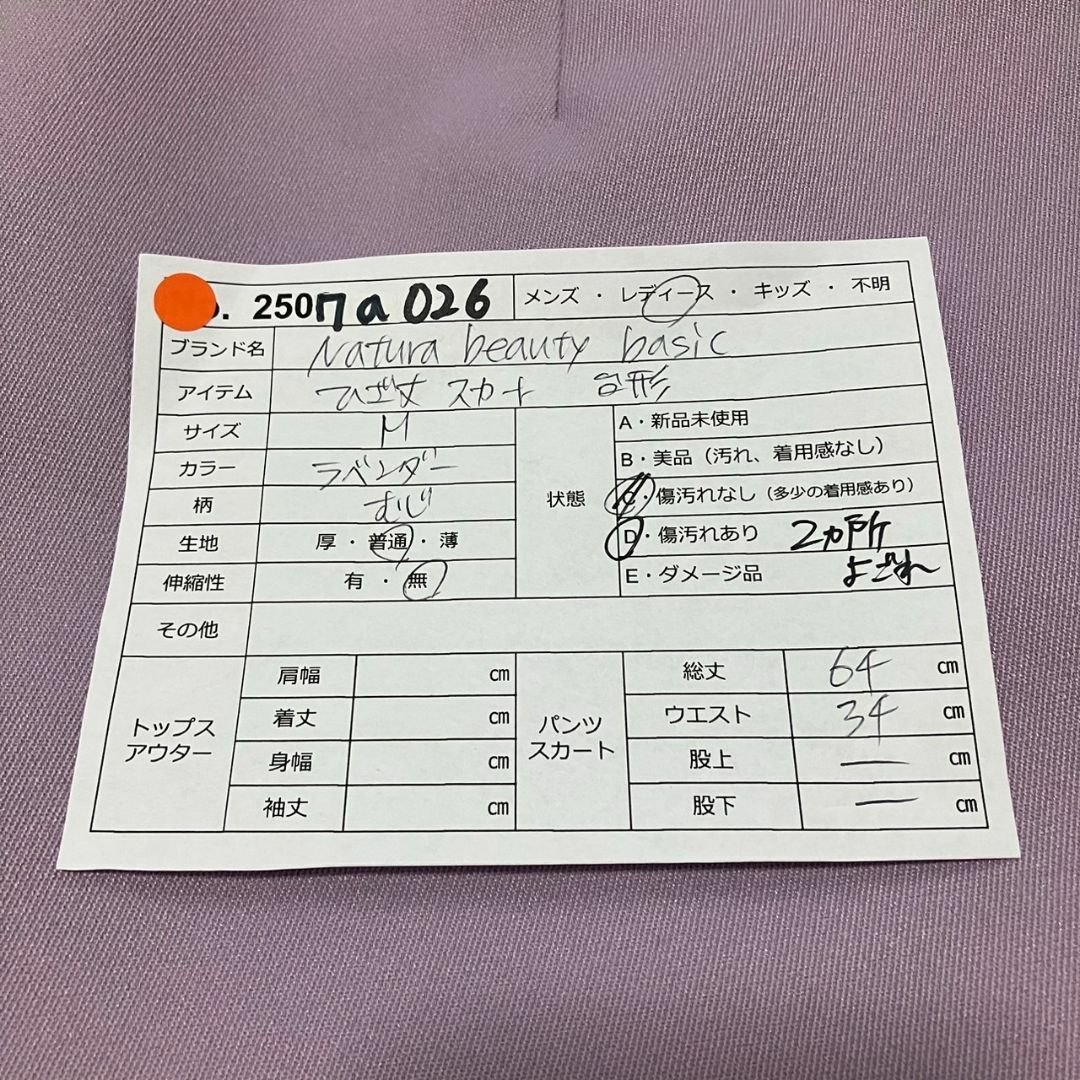 . 2507a 026 メンズ ・ レディース ・ キッズ ・ 不明
ブランド名 Natura beauty basic
アイテム ひざ丈 スカート 台形
サイズ M
カラー ラベンダー
柄 むじ
生地 厚 ・ 普通 ・ 薄
伸縮性 有 ・ 無
状態
A・新品未使用
B・美品（汚れ、着用感なし）
C・傷汚れなし（多少の着用感あり）
D・傷汚れあり 2ヵ所
E・ダメージ品 よごれ
その他
トップス
アウター
肩幅 cm
着丈 cm
身幅 cm
袖丈 cm
パンツ
スカート
総丈 64 cm
ウエスト 34 cm
股上 — cm
股下 — cm